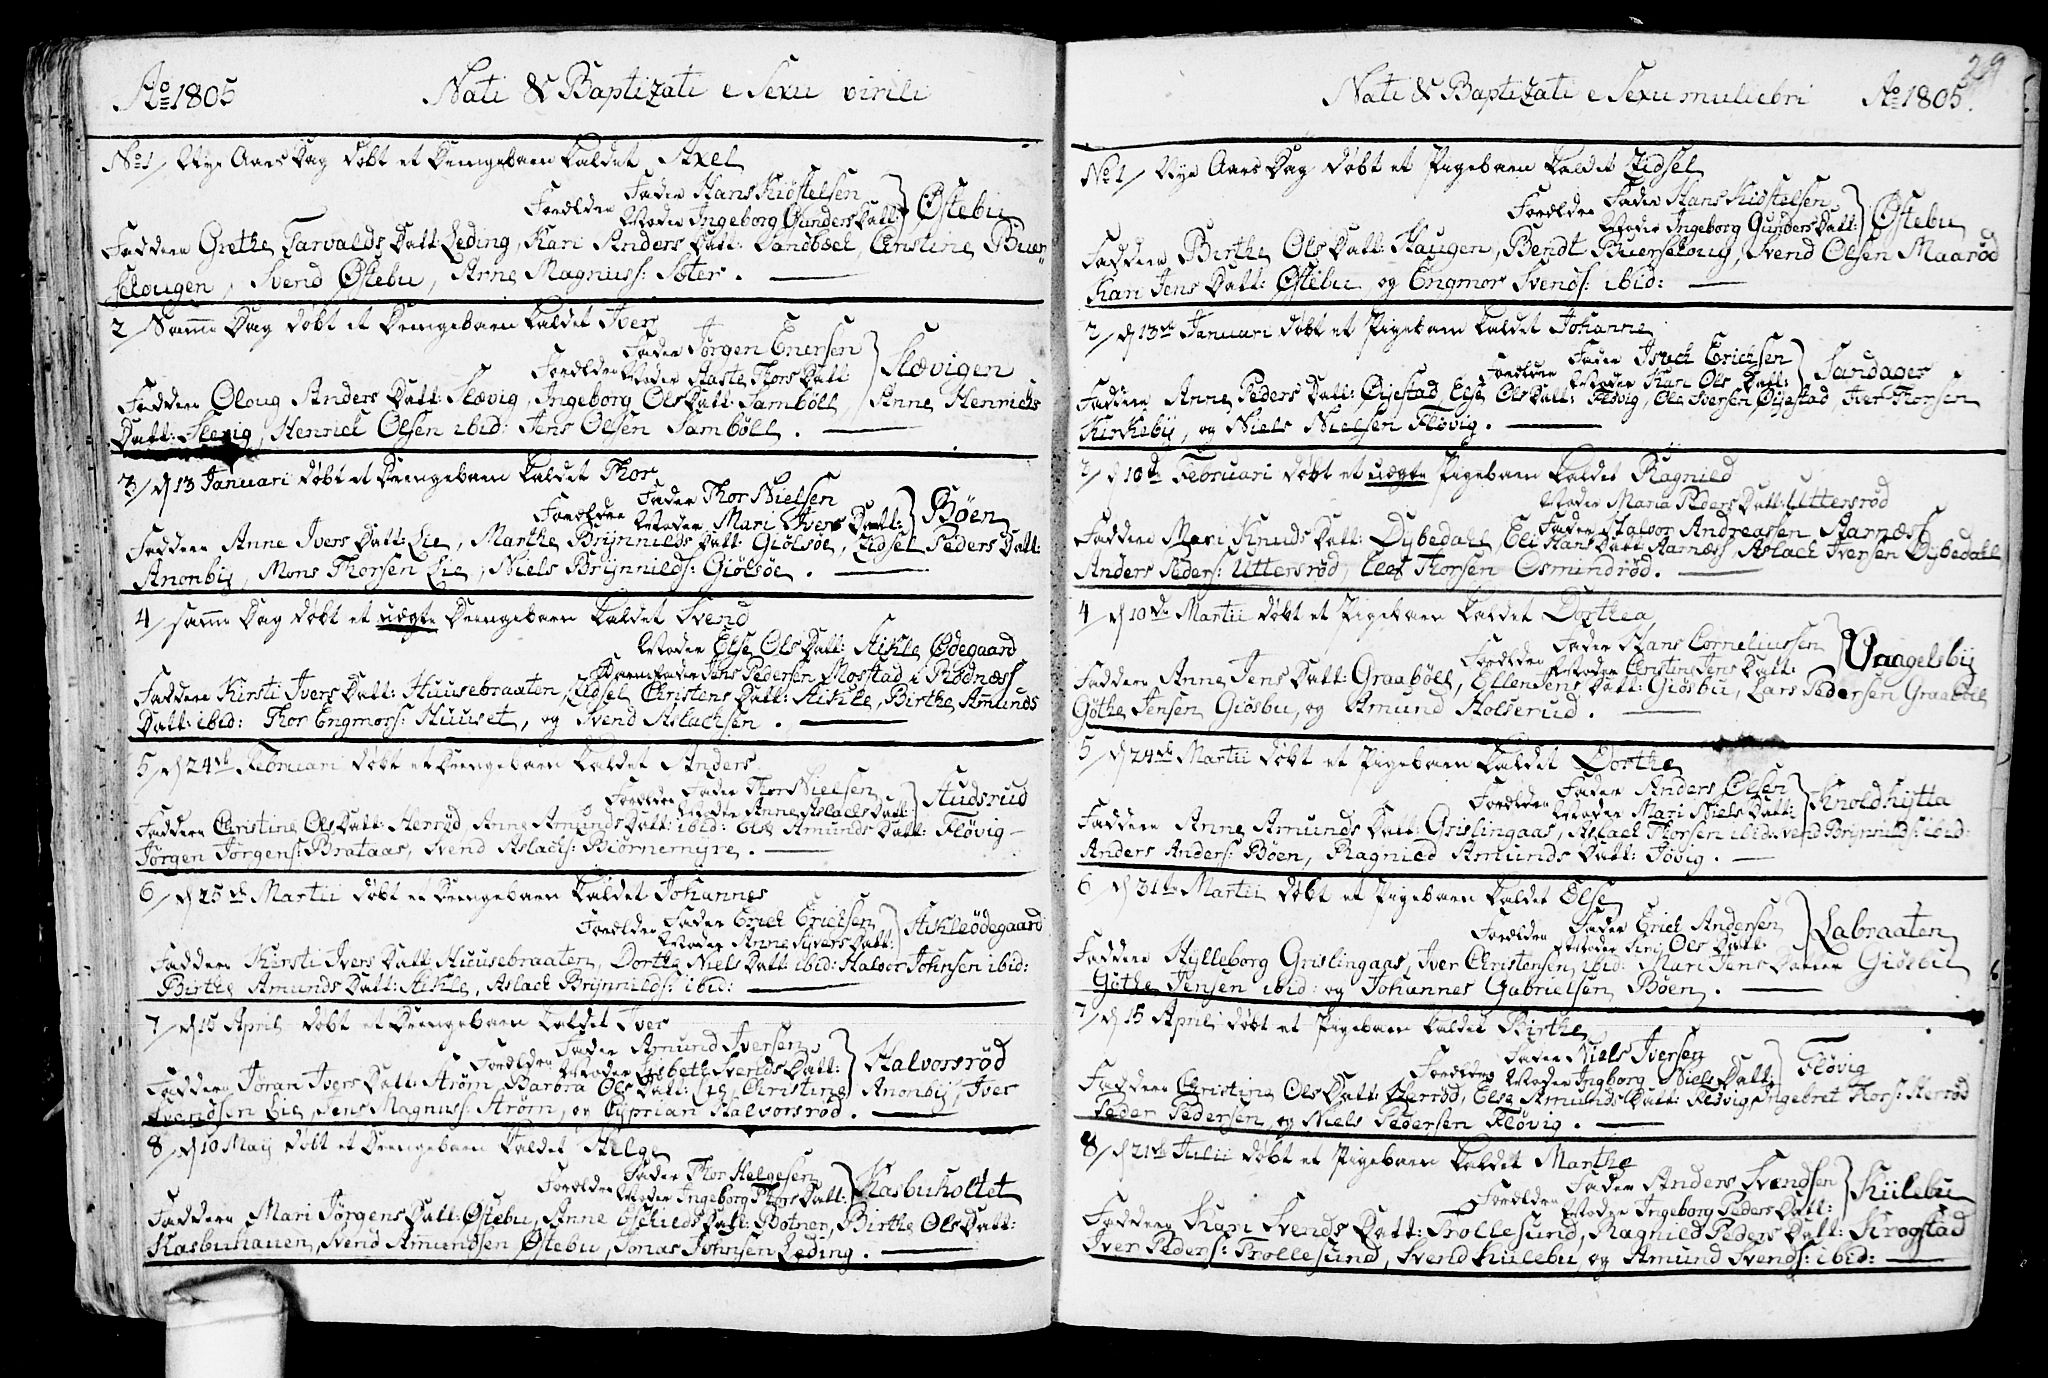 Ao 1805 Nati & Baptizati e Sexu virili
No 1/ Nye Aars Dag döbt et Drengebarn kaldet Axel
Forældre Fader Hans Kiöstelsen
Moder Ingeborg Gunders Datt: Östebu
Faddere Grethe Tarvalds Datt: Leding, Kari Anders Datt: Sandbæck, Christine Buer
Slougen, Svend Östebu, Arne Magnuss: Soter.
2/ Samme Dag döbt et Drengebarn kaldet Iver
Fader Jörgen Enersen
Forældre Moder Aaste Thors Datt Slævigen
Faddere Oloug Anders Datt: Slævig, Ingeborg Ols Datt: Samböll, Anne Henrichs
Datt: Slevig, Henrich Olsen ibid: Jens Olsen Samböll.
3/ d 13 Januari döbt et Drengebarn kaldet Thor
Forældre Fader Thor Nielsen
Moder Mari Ivers Datt: Böen
Faddere Anne Ivers Datt: Lie, Marthe Brynnilds Datt: Giölsöe, Zidsel Peders Datt:
Anonby, Mons Thorsen Lie, Niels Brynnilds: Giölsöe.
4/ samme Dag döbt et uægte Drengebarn kaldet Svend
Moder Else Ols Datt: Hikle Ödegaard
Barnefader Jens Pedersen Mostad i Rödnæss
Faddere Kirsti Ivers Datt: Huusebraaten, Zidsel Christens Datt: Hikkle, Birthe Amunds
Datt: ibid: Thor Engmors: Huuset, og Svend Aslachsen.
5/ d 24de Februari döbt et Drengebarn kaldet Anders
Forældre Fader Thor Nielsen
Moder Anne Aslachs Datt: Hudsrud
Faddere Christine Ols Datt: Herröd, Anne Amunds Datt: ibid: Else Amunds Datt: Flövig
Jörgen Jörgens: Brataas, Svend Aslachs: Biörnemyre.
6/ d 25de Martii döbt et Drengebarn kaldet Johannes
Forældre Fader Erich Erichsen
Moder Anne Sivers Datt: Hikleödegaard
Faddere Kirsti Ivers Datt Huusebraaten, Dorthe Niels Datt ibid: Halvor Johnsen ibid:
Birthe Amunds Datt: Hikle, Aslach Brynnilds: ibid:
7/ d 15 April döbt et Drengebarn kaldet Iver
Forældre Fader Amund Iversen
Moder Lisbeth Svends Datt: Halvorsröd
Faddere Jöran Ivers Datt: Ström, Barbra Ols Datt: Lie, Christine Anonby, Iver
Svendsen Lie, Jens Magnuss: Ström, og Cyprian Halvorsröd.
8/ d 10 Maij döbt et Drengebarn kaldet Helge
Forældre Fader Thor Helgesen
Moder Ingeborg Thors Datt: Kasbuholtet
Faddere Mari Jörgens Datt: Östebu, Anne Eschilds Datt: Botner, Birthe Ols Datt:
Kasbuhauen, Svend Amundsen Östebu, Jonas Johnsen Leding.
29
Nati & Baptizati e Sexu muliebri Ao 1805.
No 1/ Nye Aars Dag döbt et Pigebarn kaldet Zidsel
Forældre Fader Hans Kiöstelsen
Moder Ingeborg Gunders Datt: Östebu
Faddere Birthe Ols Datt: Haugen, Bendt Buerseloug, Svend Olsen Maaröd
Kari Jens Datt: Östebu og Engmor Svends: ibid:
2/ d 13de Januari döbt et Pigebarn kaldet Johanne
Forældre Fader Isach Erichsen
Moder Kari Ols Datt: Sandager
Faddere Anne Peders Datt: Öyestad, Else Ols Datt: Flövig, Ole Iversen Öyestad, Iver Thorsen
Kirkeby, og Niels Nielsen Flövig.
3/ d 10de Februari döbt et uægte Pigebarn kaldet Ragnild
Moder Maria Peders Datt: Uttersröd
Fader Halvor Andreassen Aarnæss
Faddere Mari Knuds Datt: Dybedahl, Eli Hans Datt: Aarnæss, Aslach Iversen Dybedahl
Anders Peders: Uttersröd, Thorsen Osmundröd.
4/ d 10de Martii döbt et Pigebarn kaldet Dorthea
Forældre Fader Hans Corneliussen
Moder Christine Jens Datt: Vaagelsby
Faddere Anne Jens Datt: Graaböll, Ellen Jens Datt: Giösbu, Lars Pedersen Graaböll
Göthe Jensen Giösbu, og Amund Holserud.
5/ d 24de Martii döbt et Pigebarn kaldet Dorthe
Forældre Fader Anders Olsen
Moder Mari Niels Datt: Knoldhytta
Faddere Anne Amunds Datt: Grislingaas, Aslach Thorsen ibid: Svend Brynnilds: ibid:
Anders Anders: Böen, Ragnild Amunds Datt: Jövig.
6/ d 31te Martii döbt et Pigebarn kaldet Else
Forældre Fader Erich Andersen
Moder Siri Ols Datt: Labraaten
Faddere Hylleborg Grislingaas, Iver Christensen ibid: Mari Jens Datter Giösbu
Göthe Jensen ibid: og Johannes Gabrielsen Böen.
7/ d 15 April döbt et Pigebarn kaldet Birthe
Forældre Fader Niels Iversen
Moder Ingborg Niels Datt: Flövig
Faddere Christine Ols Datt: Herröd, Else Amunds Datt: Flövig, Ingebret Thors: Herröd
Peder Pedersen, og Niels Pedersen Flövig.
8/ d 21de Julii döbt et Pigebarn kaldet Marthe
Forældre Fader Anders Svendsen
Moder Ingeborg Peders Datt: Kiilebu
Faddere Kari Svends Datt: Trollesund, Ragnild Peders Datt: Krogstad
Iver Peders: Trollesund, Svend Kiilebu, og Amund Svends: ibid: